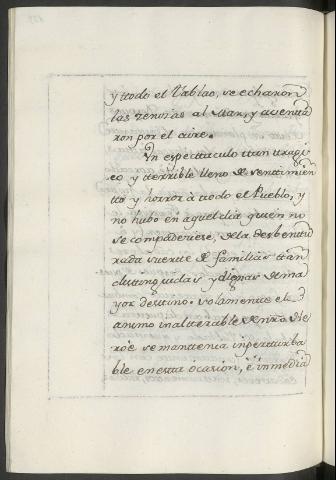 y ttodo el Tablao, se echaron
las zenizas al Mar, y aventta
ron por el aire.
Un especttaculo ttan ttragi
co y tterrible lleno de senttimien
tto y horror â ttodo el Pueblo, y
no hubo en aquel dia quien no
se compadeciese, de la desbenttu
rada suertte de familias ttan
disttinguidas y dignas de ma
yor desttino. solamentte el
animo inaltterable de nro. He
roê se manttenia inperturba
ble en estta ocasion, ê inmedia